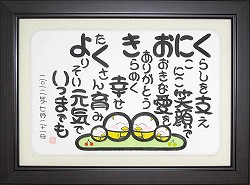 くらしを支え
にこにこ笑顔で
おおきな愛を
ありがとう
きらめく幸せ
たくさん育み
よりそい元気で
いつまでも